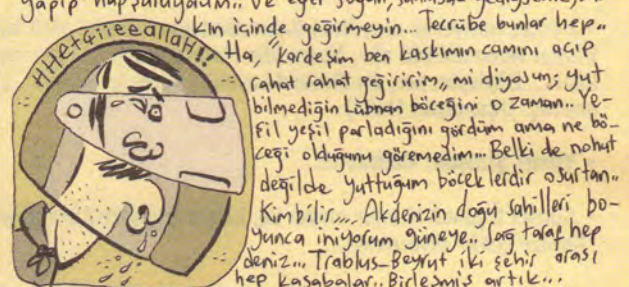 yapıp hapşuruyordum.. ve eğer soğan, sarmısak yediyseniz
kın içinde geğirmeyin... Tecrübe bunlar hep..
HHetçiieeeallaH!!
Ha, "kardeşim ben kaskımın camını açıp
rahat rahat geğiririm,, mi diyosun; yut
bilmediğin Lübnan böceğini o zaman.. Ye-
şil yeşil parladığını gördüm ama ne bö-
ceği olduğunu göremedim... Belki de nohut
değilde yuttuğum böceklerdir osurtan..
Kimbilir,,,, Akdenizin doğu sahilleri bo-
yunca iniyorum güneye.. Sağ taraf hep
deniz... Trablus-Beyrut iki şehir arası
hep kasabalar.. Birleşmiş artık...